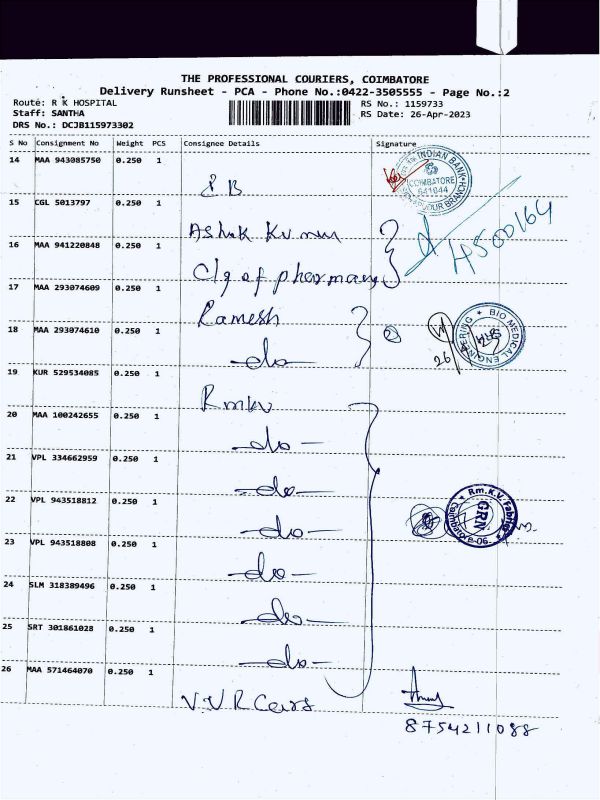 THE PROFESSIONAL COURIERS, COIMBATORE
Delivery Runsheet - PCA - Phone No.:0422-3505555 - Page No.:2
Route: R K HOSPITAL RS No.: 1159733
Staff: SANTHA RS Date: 26-Apr-2023
DRS No.: DCJB115973302
S No Consignment No Weight PCS Consignee Details Signature
14 MAA 943085750 0.250 1
INDIAN BANK
COIMBATORE
641044
BRANCH
15 CGL 5013797 0.250 1
Ashok Kumar
16 MAA 941220848 0.250 1
Clg of pharmacy
17 MAA 293074609 0.250 1
Ramesh
BIO MEDICAL ENGINEERING
18 MAA 293074610 0.250 1
-do-
26
19 KUR 529534085 0.250 1
Rmkv
20 MAA 100242655 0.250 1
-do-
21 VPL 334662959 0.250 1
-do-
22 VPL 943518812 0.250 1
-do-
Rm.K.V. Fabrics
GRN
Coimbatore-06.
23 VPL 943518808 0.250 1
-do-
24 SLM 318389496 0.250 1
-do-
25 SRT 301861028 0.250 1
-do-
26 MAA 571464070 0.250 1
V.V.R Cars
8754211088